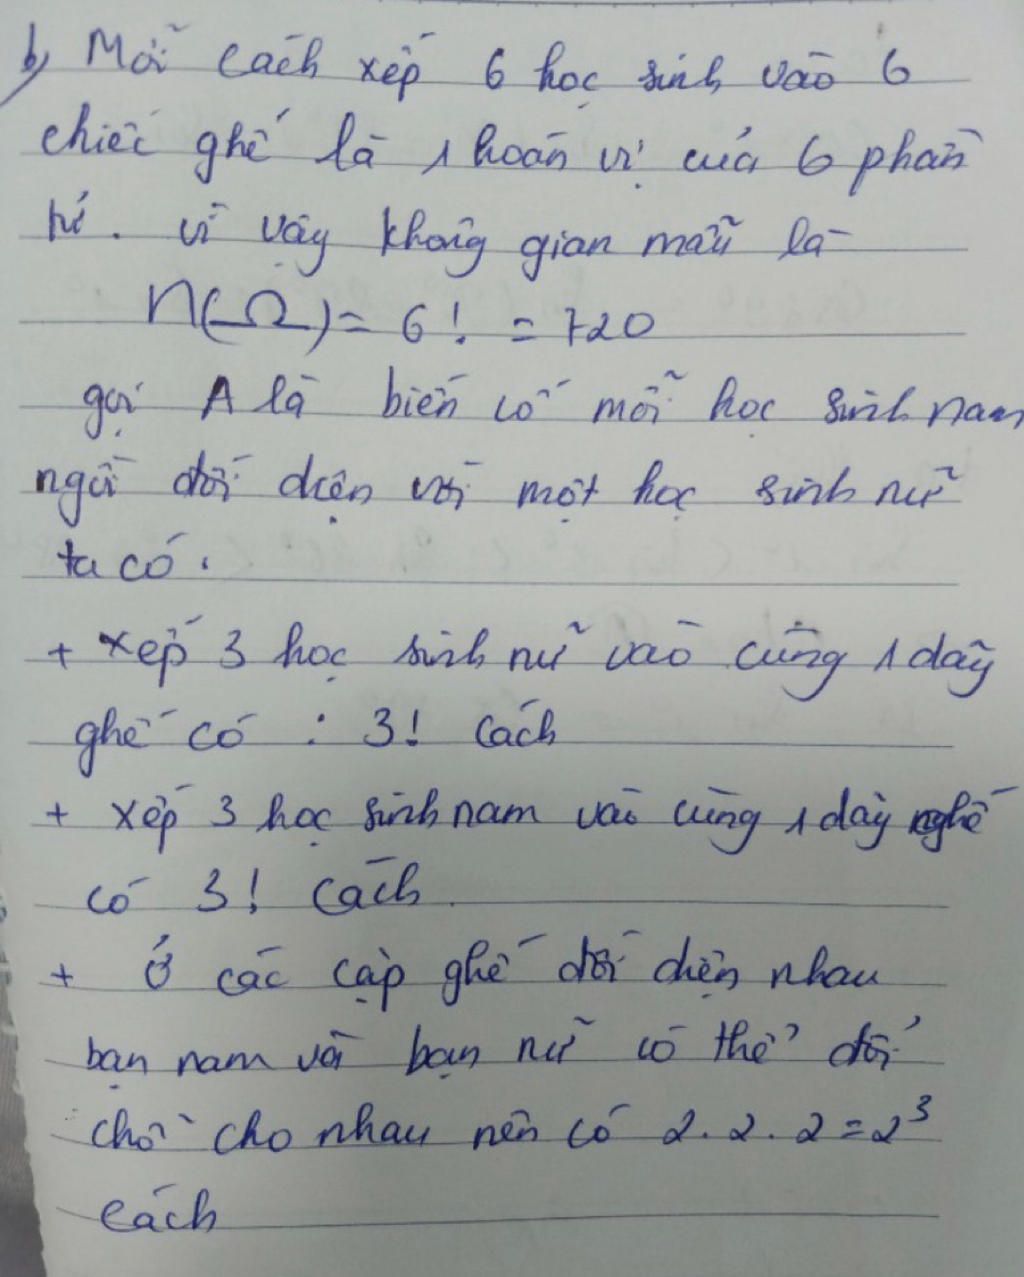 b) Mỗi cách xếp 6 học sinh vào 6
chiếc ghế là 1 hoán vị của 6 phần
tử. vì vậy không gian mẫu là
n(Ω) = 6! = 720
gọi A là biến cố mỗi học sinh nam
ngồi đối diện với một học sinh nữ
ta có.
+ xếp 3 học sinh nữ vào cùng 1 dãy
ghế có : 3! cách
+ xếp 3 học sinh nam vào cùng 1 dãy ghế
có 3! cách.
+ Ở các cặp ghế đối diện nhau
bạn nam với bạn nữ có thể đổi
chỗ cho nhau nên có 2.2.2=2³
cách